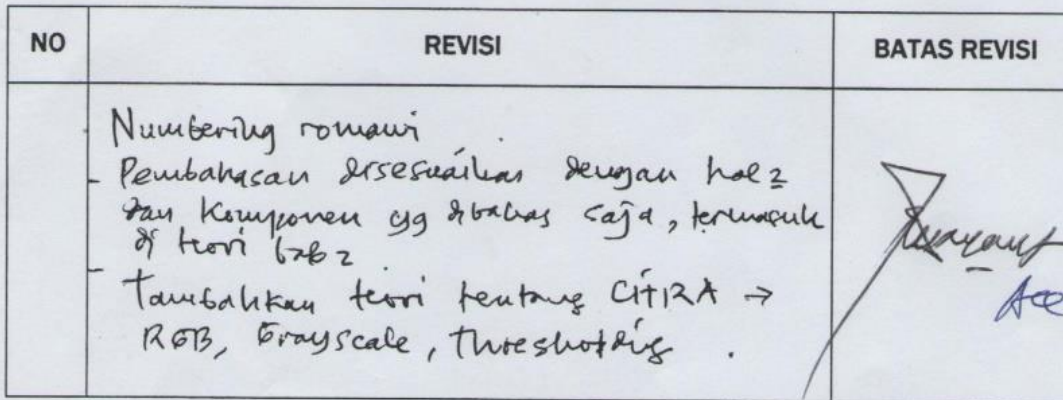 NO REVISI BATAS REVISI
- Numbering romawi
- Pembahasan disesuaikan dengan hal2
dan komponen yg dibahas saja, termasuk
di teori bab 2
- Tambahkan teori tentang CITRA →
RGB, Grayscale, thresholding.
Acc